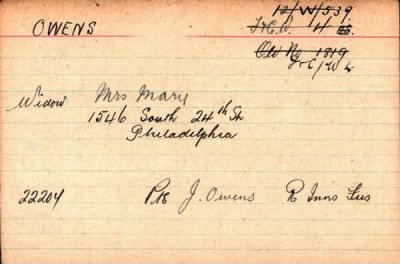 OWENS
12/W/539.
F&C.W. 4
Old No 1819
F&C/W L
Widow Mrs Mary
1546 South 24th St
Philadelphia
22204 Pte J. Owens R Inns Fus